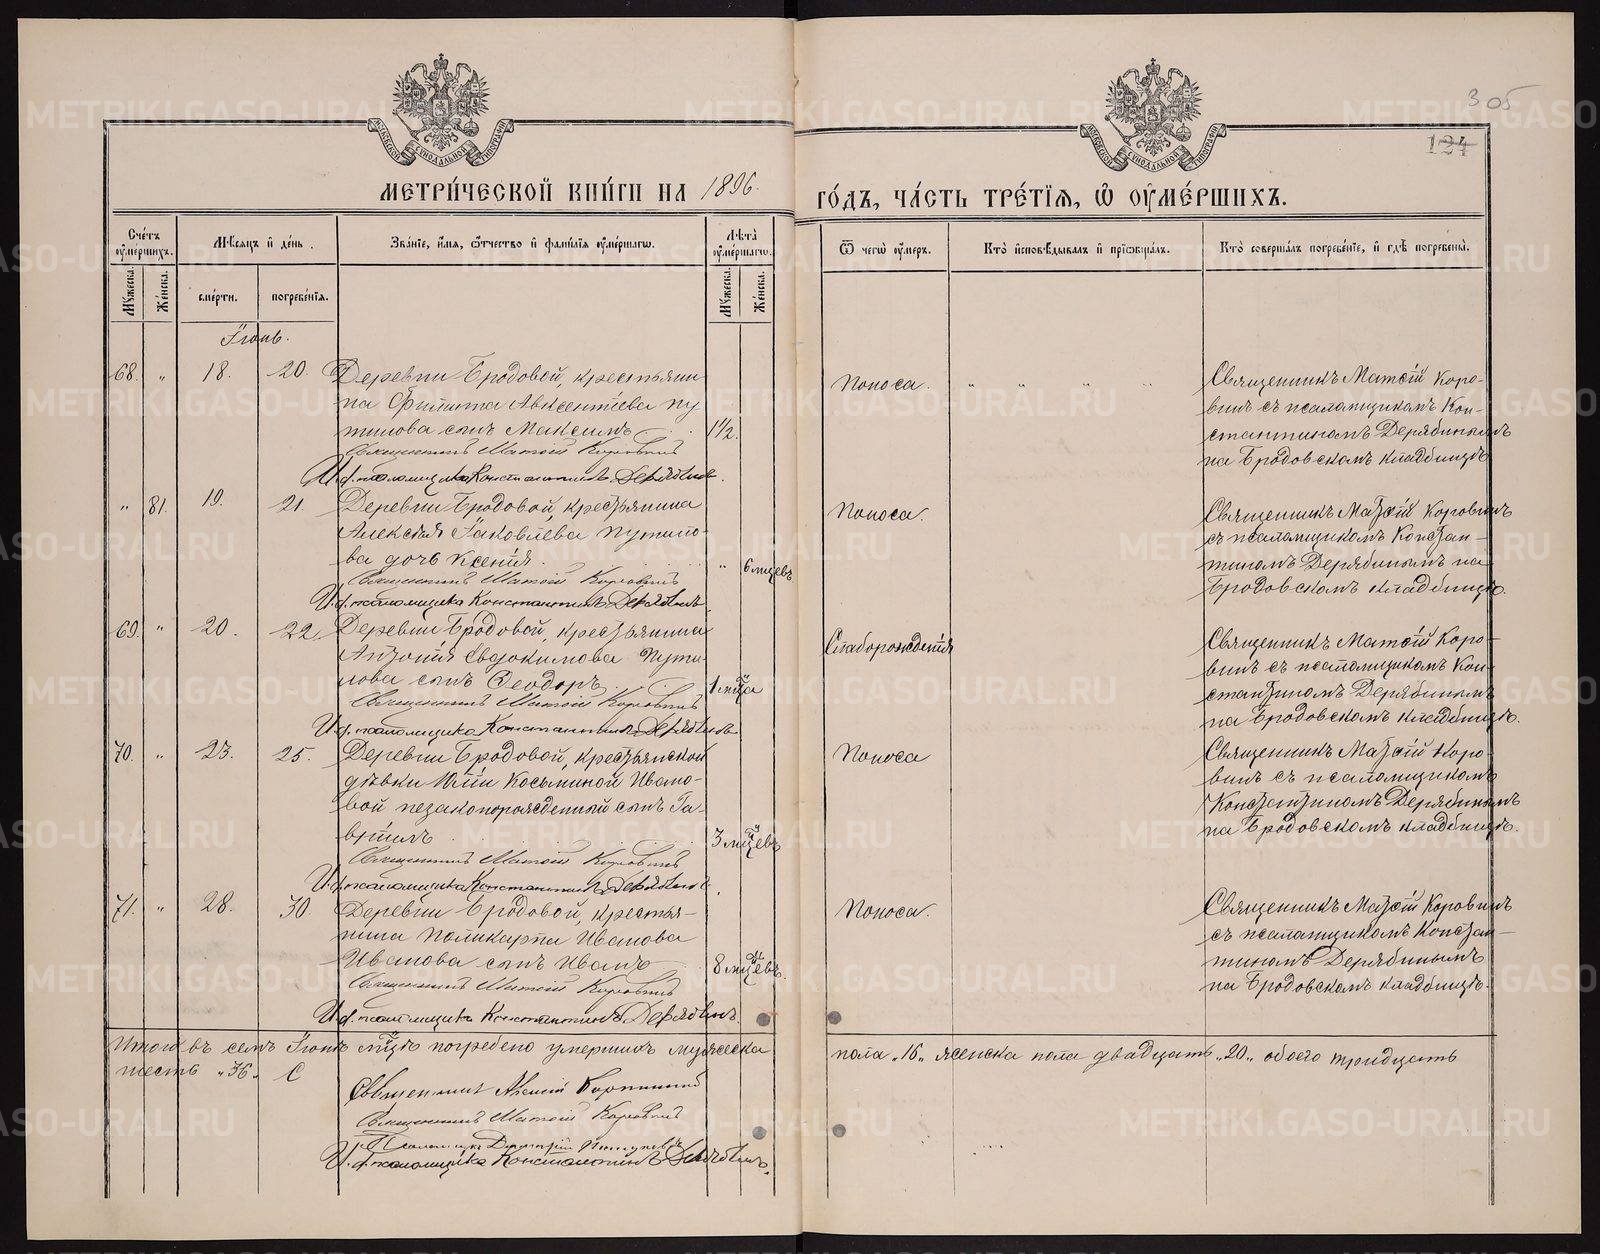 305
124
МОСКОВСКОЙ СУНОДАЛЬНОЙ ТИПОГРАФІИ
МОСКОВСКОЙ СУНОДАЛЬНОЙ ТИПОГРАФІИ
МЕТРИ́ЧЕСКОЙ КНИ́ГИ НА 1896.
ГО́ДЪ, ЧА́СТЬ ТРЕ́ТІѦ, Ѡ҆ ОУ҆МЕ́РШИХЪ.
Сче́тъ оу҆ме́ршихъ.
Мѣ́сяцъ и҆ де́нь.
Зва́ніе, и҆́мя, ѻ҆́тчество и҆ фами́лія оу҆ме́ршагѡ.
Лѣ́та оу҆ме́ршагѡ.
Ѿ чегѡ̀ оу҆́меръ.
Кто̀ и҆сповѣ́дывалъ и҆ прїѡбща́лъ.
Кто̀ соверша́лъ погребе́ніе, и҆ гдѣ̀ погребены̀.
Мꙋ́жеска.
Же́нска.
сме́рти.
погребе́нія.
Мꙋ́жеска.
Же́нска.
Іюнь.
68. „ 18. 20. Деревни Бродовой, крестьяни-
на Филиппа Авксентіева Пу
тилова сынъ Максимъ 1 1/2.
Священникъ Матѳій Коровинъ
И. д. псаломщика Константинъ Дерябинъ.
Поноса. „ „ „ „
Священникъ Матѳій Коро-
винъ съ псаломщикомъ Кон-
стантиномъ Дерябинымъ
на Бродовскомъ кладбищѣ
„ 81. 19. 21. Деревни Бродовой, крестьянина
Алексія Іаковлева Путило-
ва дочь Ксенія. „ 6 мцевъ
Священникъ Матѳій Коровинъ
И. д. псаломщика Константинъ Дерябинъ.
Поноса.
Священникъ Матѳій Коровинъ
съ псаломщикомъ Констан-
тиномъ Дерябинымъ на
Бродовскомъ кладбищѣ.
69. „ 20. 22. Деревни Бродовой, крестьянина
Антонія Евдокимова Пути-
лова сынъ Ѳеодоръ 1 мца
Священникъ Матѳій Коровинъ
И. д. псаломщика Константинъ Дерябинъ
Слаборожденія
Священникъ Матѳій Коро-
винъ съ псаломщикомъ Кон-
стантиномъ Дерябинымъ
на Бродовскомъ кладбищѣ.
70. „ 23. 25. Деревни Бродовой, крестьянской
дѣвки Юліи Косьминой Ивано-
вой незаконорожденный сынъ Га-
вріилъ 3 мцевъ
Священникъ Матѳій Коровинъ
И. д. псаломщика Константинъ Дерябинъ.
Поноса
Священникъ Матѳій Коро-
винъ съ псаломщикомъ
Константиномъ Дерябинымъ
на Бродовскомъ кладбищѣ.
71. „ 28. 30. Деревни Бродовой, крестья-
нина Поликарпа Иванова
Иванова сынъ Иванъ 8 мцевъ.
Священникъ Матѳій Коровинъ
И. д. псаломщика Константинъ Дерябинъ.
Поноса.
Священникъ Матѳій Коровинъ
съ псаломщикомъ Констан-
тиномъ Дерябинымъ
на Бродовскомъ кладбищѣ.
Итого въ семъ Іюнѣ мцѣ погребено умершихъ мужеска
пола „16„ женска пола двадцать „20„ обоего тридцать
шесть „36„
Священникъ
Священникъ Матѳій Коровинъ
Псаломщикъ Димитрій
И. д. псаломщика Константинъ Дерябинъ.
METRIKI.GASO-URAL.RU